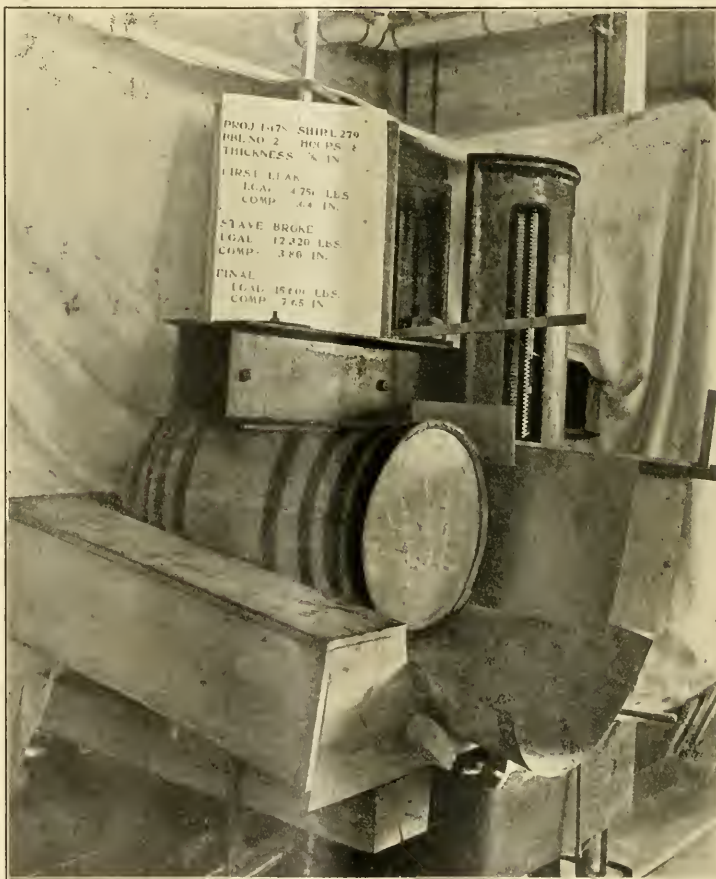 PROJ. L-178 SHIP. L 279
BBL. NO 2 HOOPS 8
THICKNESS ⅞ IN
FIRST LEAK
LOAD 4,750 LBS
COMP. IN.
STAVE BROKE
LOAD 12,320 LBS.
COMP. 3.80 IN.
FINAL
LOAD LBS.
COMP. 7.65 IN